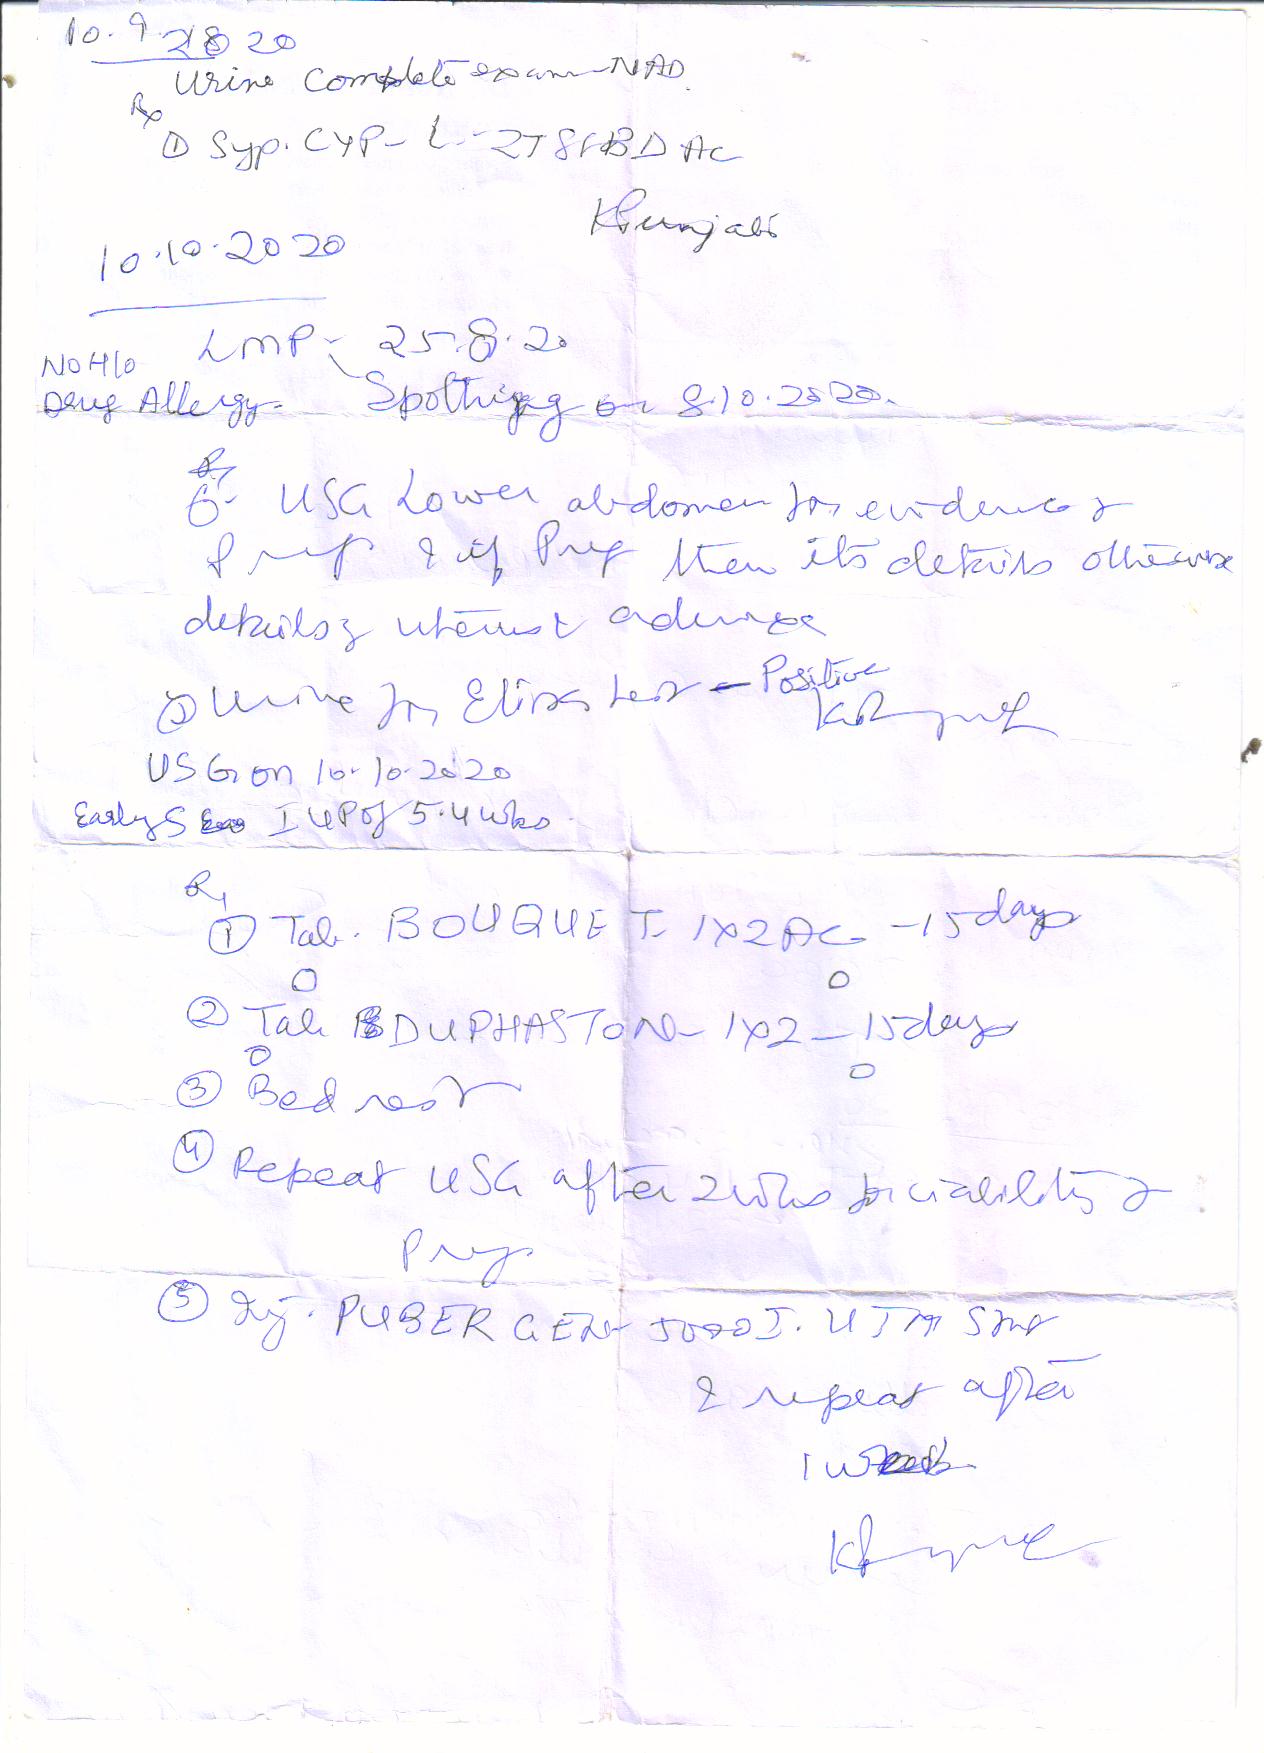 10.9.2020
Urine Complete exam - NAD.
Rx
① Syp. CYP-L - 2TSF BD AC
KPunjabi
10.10.2020
LMP - 25.8.20
No H/o
Drug Allergy - Spotting on 8.10.2020.
Rx
USG Lower abdomen for evidence of
Preg & if Preg then its details otherwise
details of uterus & adnexae
② Urine for Elisa test - Positive
USG on 10.10.2020
Early S IUP of 5.4 wks
Rx
① Tab. BOUQUET - 1x2 AC - 15 days
② Tab DUPHASTON - 1x2 - 15 days
③ Bed rest
④ Repeat USG after 2 wks for viability of
Preg.
⑤ Inj. PUBERGEN - 5000 I.U IM
& repeat after
1 week